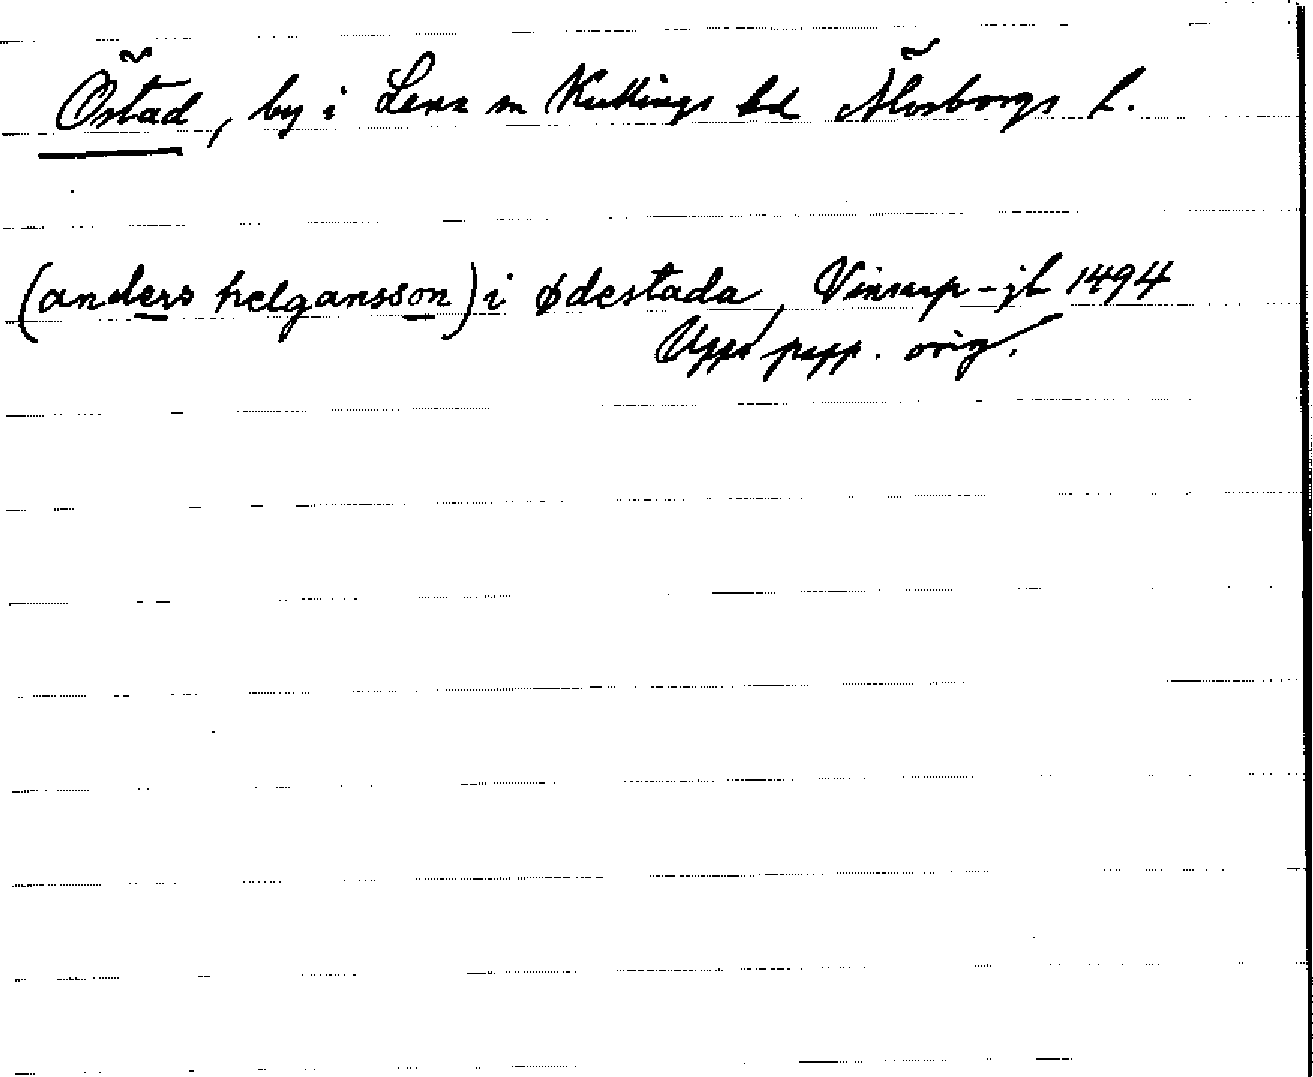 Östad, by i Lena sn Kullings hd Älvsborgs l.
(anders helgansson) i ødestada, Vinsarp-jb 1494
Upps papp. orig.